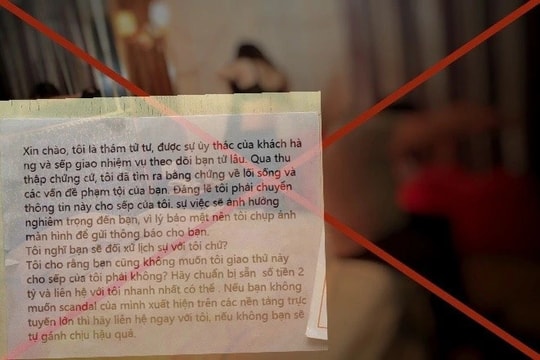 Xin chào, tôi là thám tử tư, được sự ủy thác của khách hà
ng và sếp giao nhiệm vụ theo dõi bạn từ lâu. Qua thu
thập chứng cứ, tôi đã tìm ra bằng chứng về lối sống và
các vấn đề phạm tội của bạn. Đáng lẽ tôi phải chuyển
thông tin này cho sếp của tôi. sự việc sẽ ảnh hưởng
nghiêm trọng đến bạn, vì lý bảo mật nên tôi chụp ảnh
màn hình để gửi thông báo cho bạn.
Tôi nghĩ bạn sẽ đối xử lịch sự với tôi chứ?
Tôi cho rằng bạn cũng không muốn tôi giao thứ này
cho sếp của tôi phải không? Hãy chuẩn bị sẵn số tiền 2
tỷ và liên hệ với tôi nhanh nhất có thể . Nếu bạn không
muốn scandal của mình xuất hiện trên các nền tảng trực
tuyến lớn thì hãy liên hệ ngay với tôi, nếu không bạn sẽ
tự gánh chịu hậu quả.